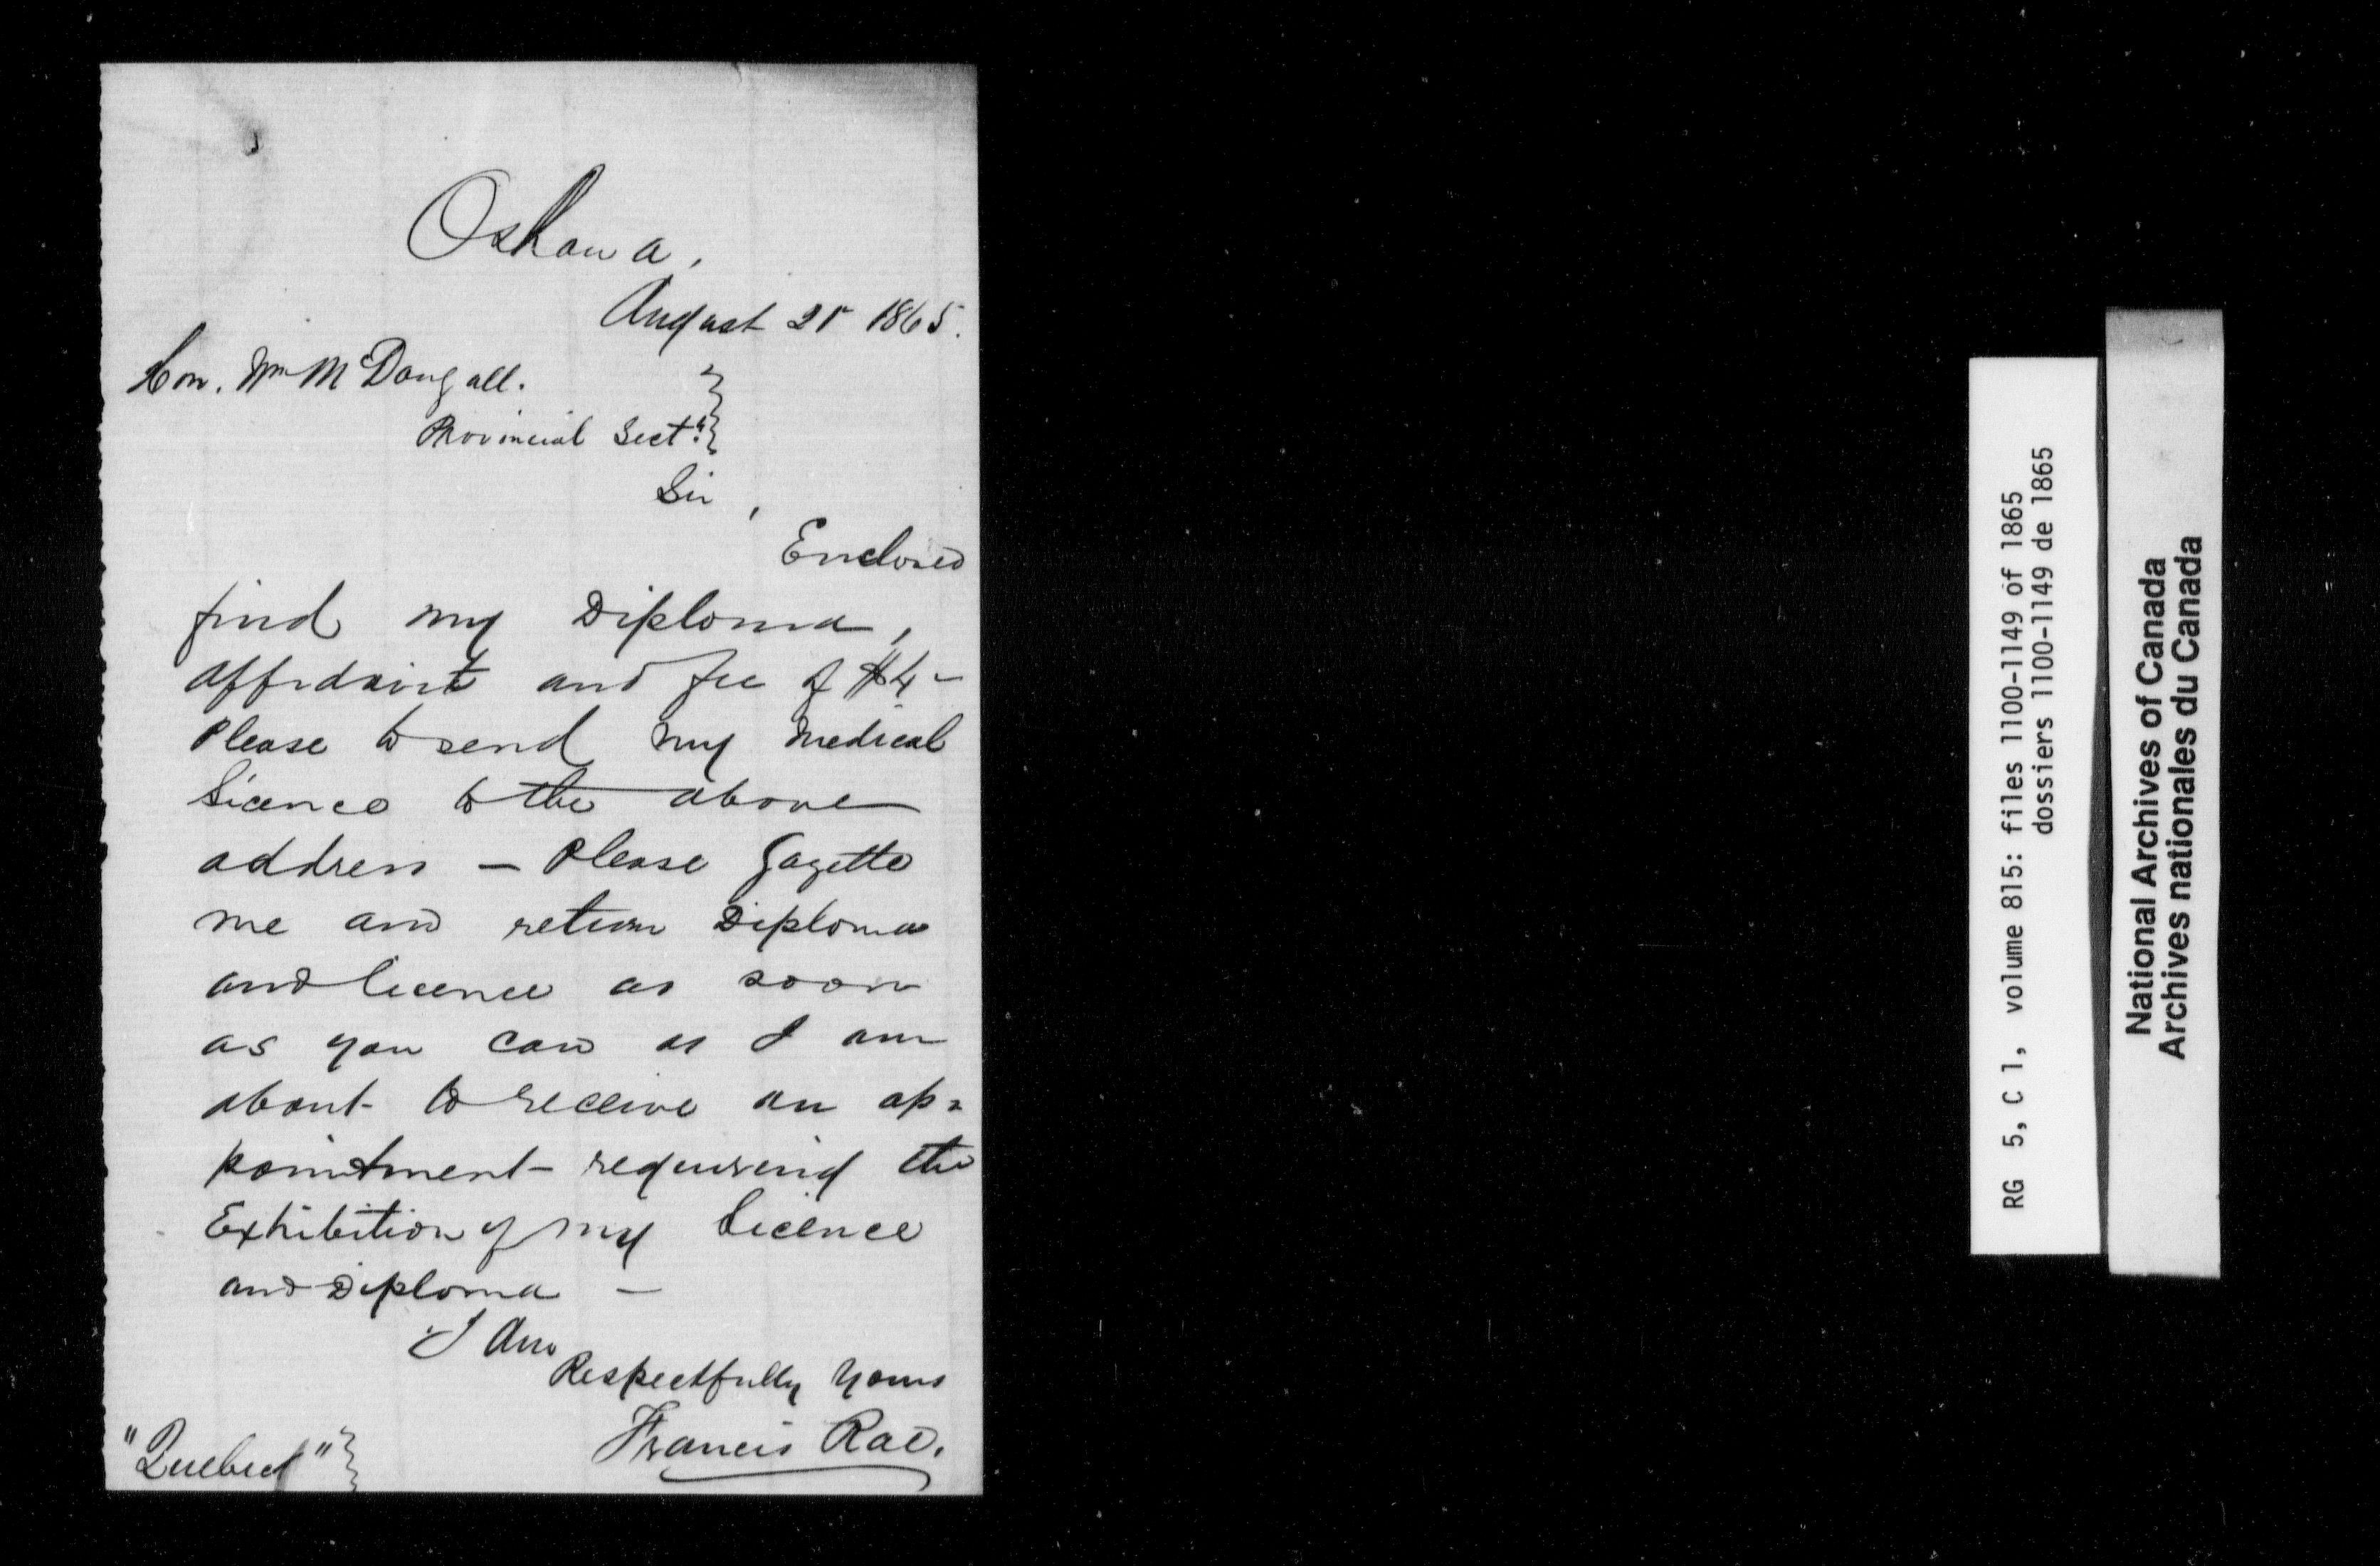 Oshawa,
August 21 1865.
Hon. Wm McDougall.
Provincial Sect.y
Sir,
Enclosed
find my Diploma,
affidavit and fee of $4 -
Please to send my Medical
Licence to the above
address — Please Gazette
me and return Diploma
and licence as soon
as you can as I am
about to receive an ap=
pointment requiring the
Exhibition of my licence
and Diploma —
I Am
Respectfully Yours
Francis Rae.
"Quebec"
RG 5, C 1, volume 815: files 1100-1149 of 1865
dossiers 1100-1149 de 1865
National Archives of Canada
Archives nationales du Canada